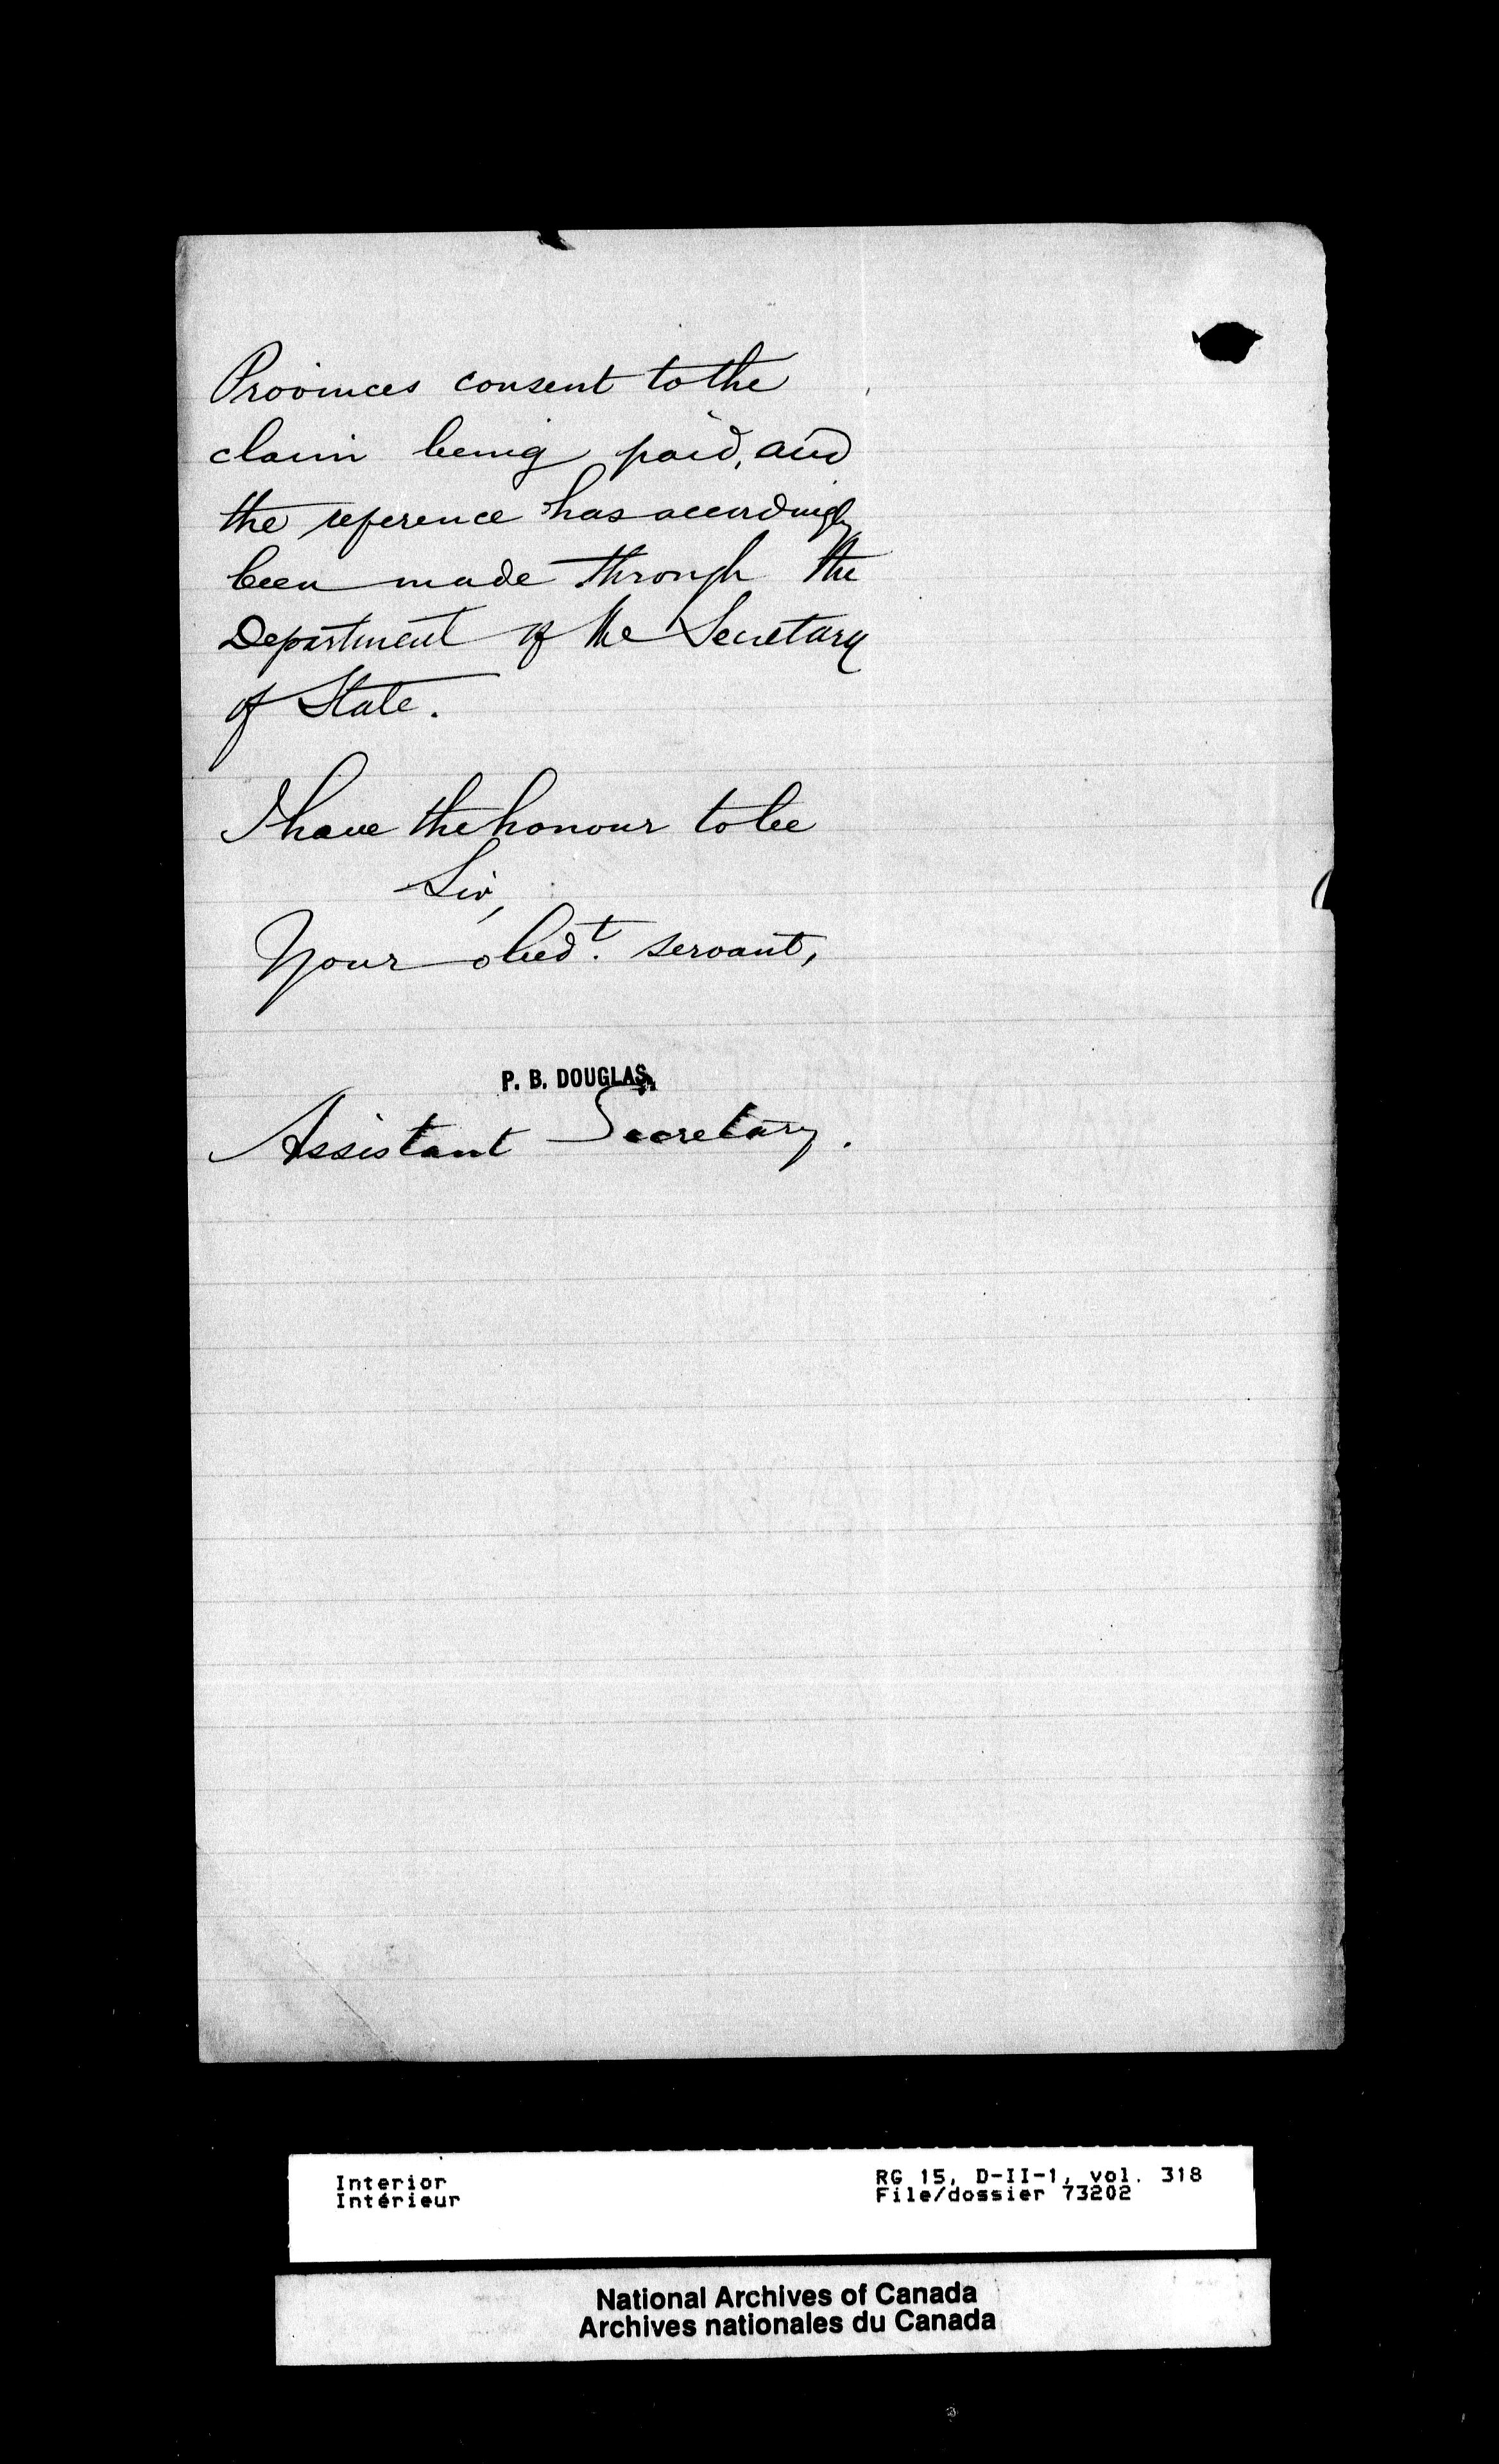 Provinces consent to the
claim being paid, and
the reference has accordingly
been made through the
Department of the Secretary
of State.
I have the honour to be
Sir,
Your obedt. servant,
P. B. DOUGLAS,
Assistant Secretary.
Interior
Intérieur
RG 15, D-II-1, vol. 318
File/dossier 73202
National Archives of Canada
Archives nationales du Canada